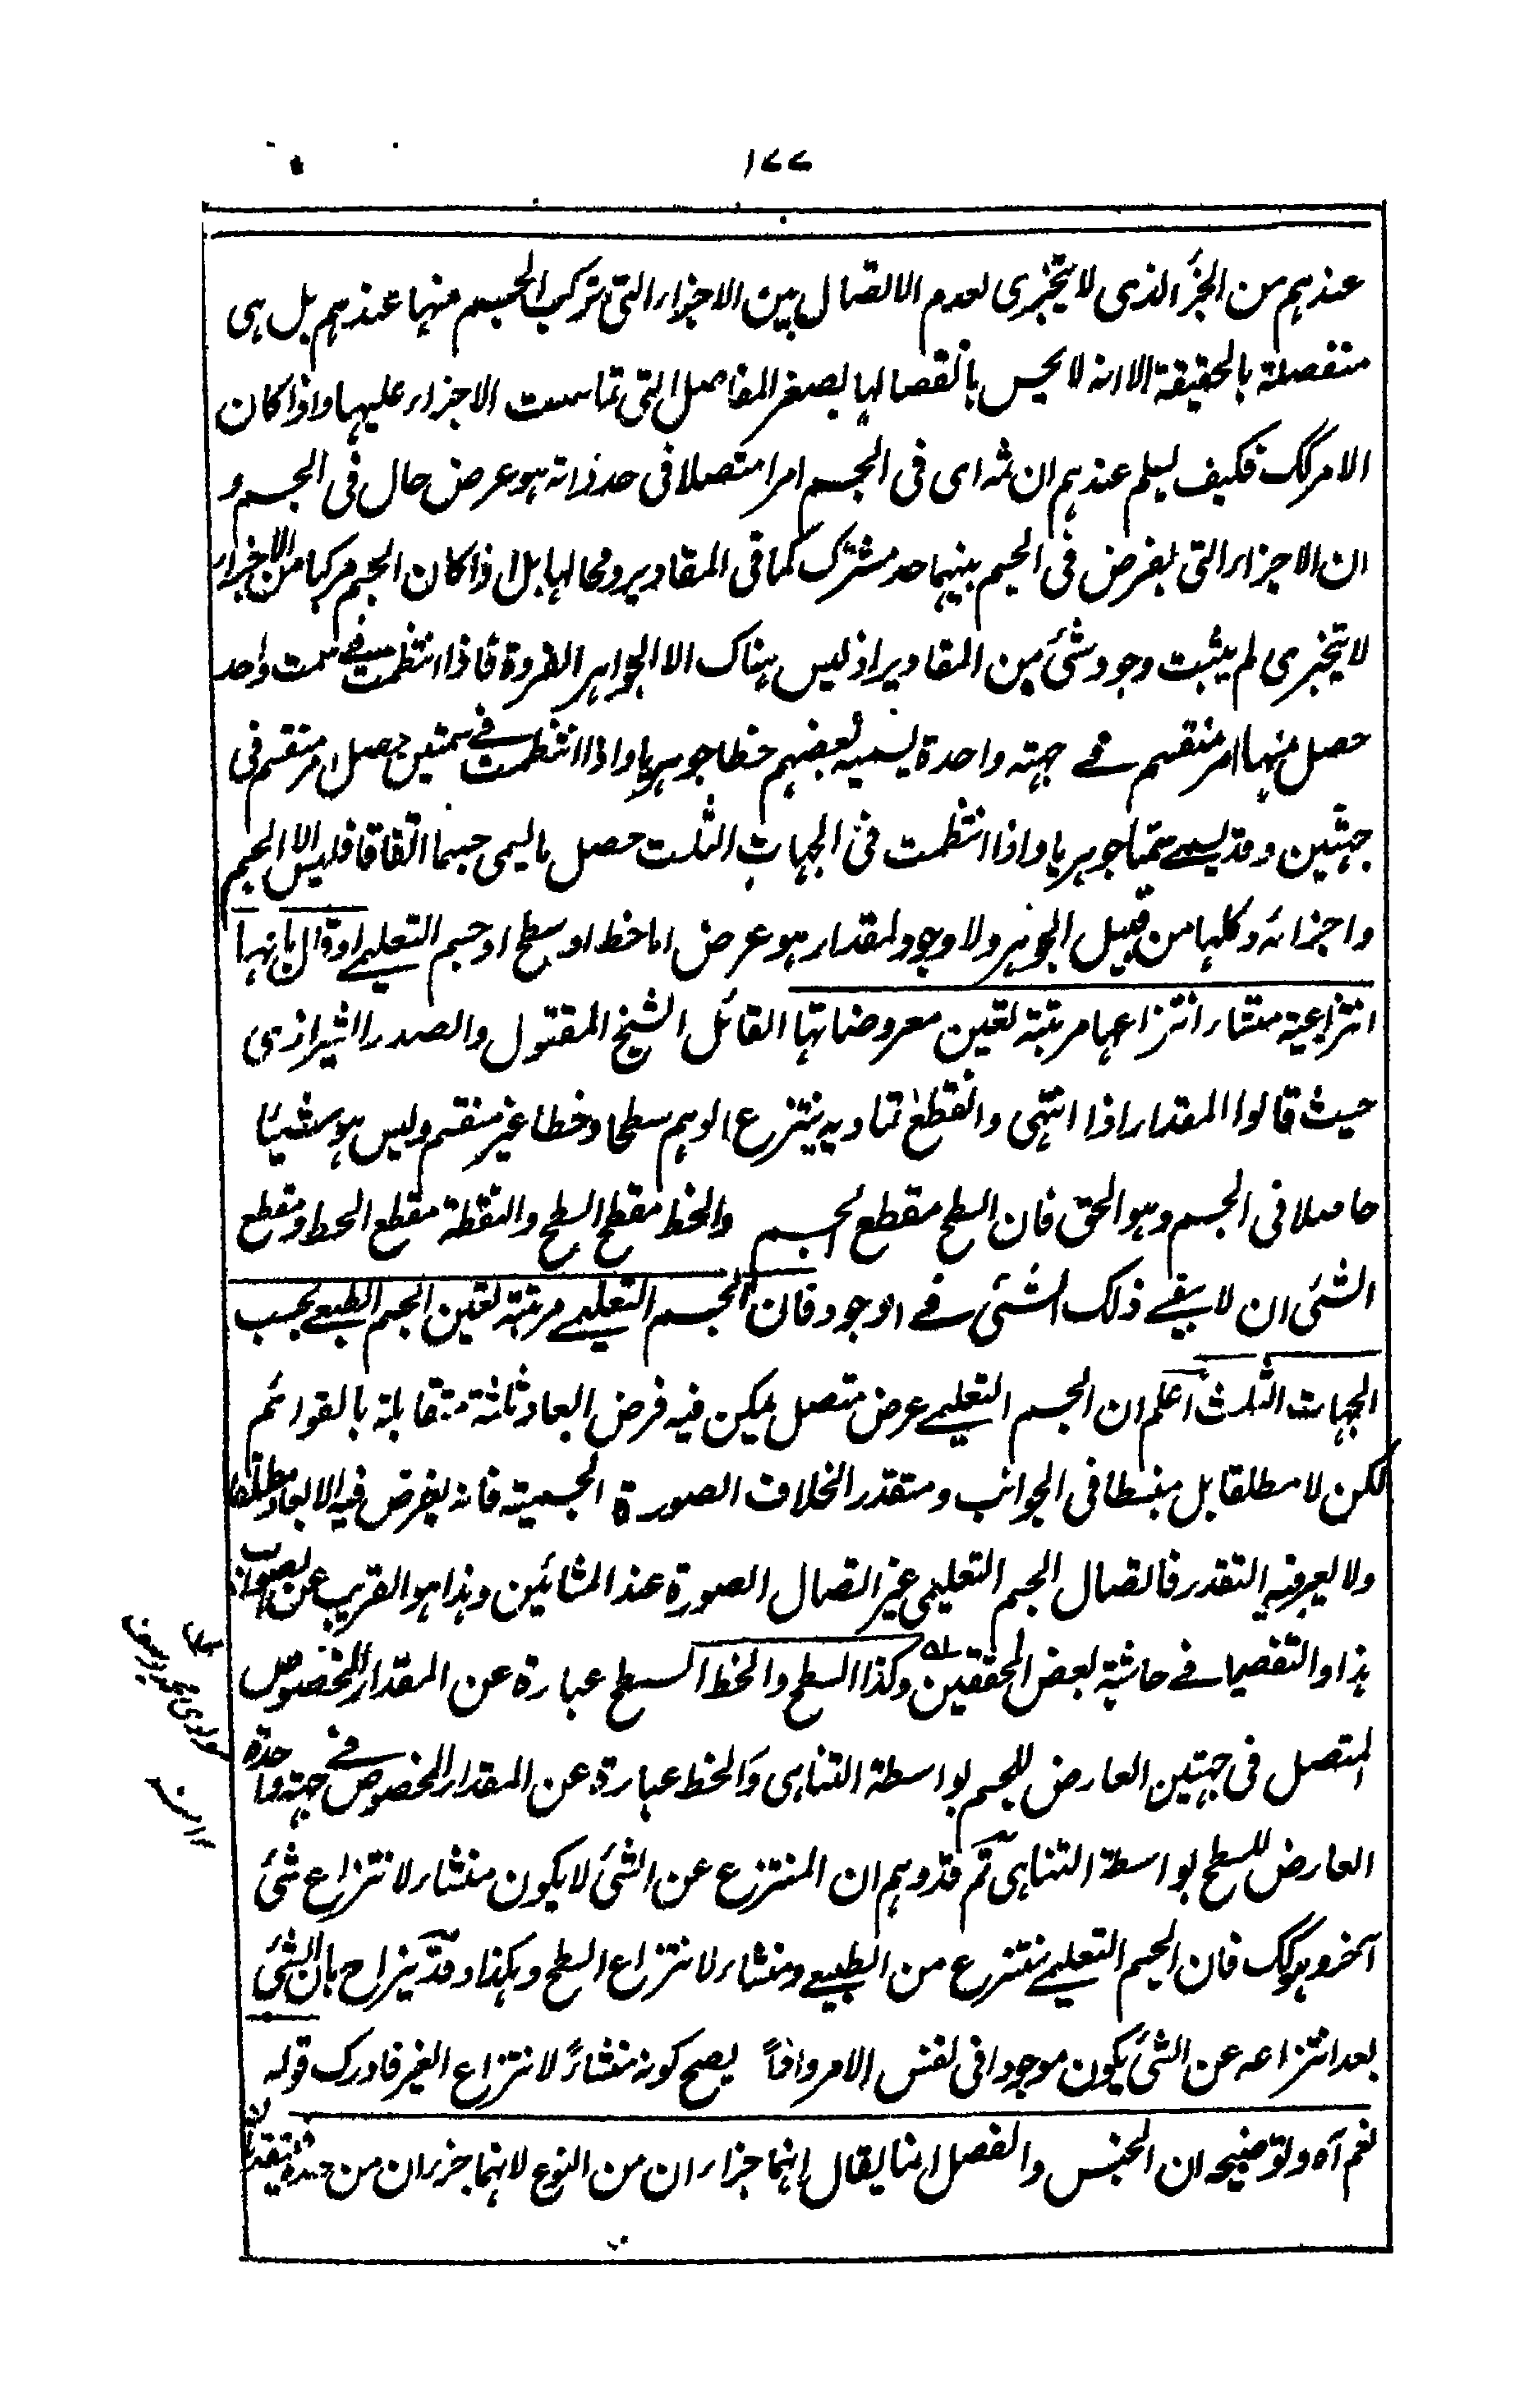 ١٧٧
عندهم من الجزء الذى لا يتجزى لعدم الاتصال بين الاجزاء التى تركب الجسم منها عندهم بل هى
منفصلة بالحقيقة الا انه لا يحس بانفصالها لصغر المفاصل التى تماست الاجزاء عليها واذا كان
الامر كك فكيف يسلم عندهم ان ثمه اى فى الجسم امرا متصلا فى حد ذاته هو عرض حال فى الجسم و
ان الاجزاء التى يفرض فى الجسم بينهما حد مشترك كما فى المقادير ومحالها بل اذا كان الجسم مركبا من الاجزاء
لا تتجزى لم يثبت وجود شئ من المقادير اذ ليس هناك الا الجواهر الفردة فاذا انتظمت فى سمت واحد
حصل منها امر منقسم فى جهته واحدة يسميه بعضهم خطا جوهريا واذا انتظمت فى سمتين حصل امر منقسم فى
جهتين وقد يسمى سطحا جوهريا واذا انتظمت فى الجهات الثلث حصل ما يسمى جسما اتفاقا فليس الا الجسم
واجزائه وكلها من قبيل الجوهر ولا وجود لمقدار هو عرض اما خط او سطح او جسم التعليمى او قال بانها
انتزاعية منشاء انتزاعها مرتبة تعين معروضاتها القائل الشيخ المقتول والصدر الشيرازى
حيث قالوا المقدار اذا انتهى وانقطع تماديه ينتزع الوهم سطحا وخطا غير منقسم وليس هو شيئا
حاصلا فى الجسم وهو الحق فان السطح مقطع الجسم والخط مقطع السطح والنقطة مقطع الخط ومقطع
الشئ ان لا يبقى ذلك الشئ فى الوجود فان الجسم التعليمى مرتبة تعين الجسم الطبعى بحسب
الجهات الثلث اعلم ان الجسم التعليمى عرض متصل يمكن فيه فرض ابعاد ثلثة متقابلة بالقوائم
لكن لا مطلقا بل منبسطا فى الجوانب ومتقدر الخلاف الصورة الجسمية فانه يفرض فيه الابعاد مطلقا
ولا يعرفيه التقدر فاتصال الجسم التعليمى غير اتصال الصورة عند المشائين وهذا هو القريب عن بصواب
هذا والتفصيل فى حاشية بعض المحققين وكذا السطح والخط السطح عبارة عن المقدار المخصوص
المتصل فى جهتين العارض للجسم بواسطة التناهى والخط عبارة عن المقدار المخصوص فى جهة واحدة
العارض للسطح بواسطة التناهى ثم قد وهم ان المنتزع عن الشئ لا يكون منشاء لانتزاع شئ
آخر وهو كك فان الجسم التعليمى ينتزع من الطبيعى ومنشاء لانتزاع السطح وهكذا وقد يزاح بان الشئ
بعد انتزاعه عن الشئ يكون موجودا فى نفس الامر واقعا يصح كونه منشاءً لانتزاع الغير فادرك قوله
نعم آه وتوضيحه ان الجنس والفصل انما يقال انهما جزءان من النوع لانهما جزءان من حده